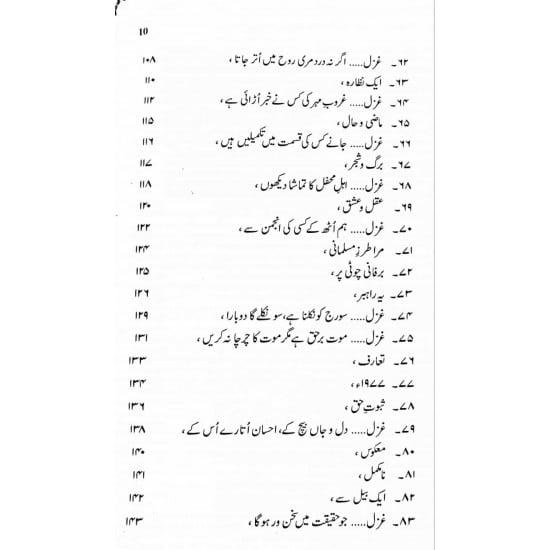 10
۶۲۔ غزل..... اگر نہ درد مری روح میں اُتر جاتا ، ۱۰۸
۶۳۔ ایک نظارہ ، ۱۱۰
۶۴۔ غزل..... غروبِ مہر کی کس نے خبر اُڑائی ہے ، ۱۱۲
۶۵۔ ماضی و حال ، ۱۱۵
۶۶۔ غزل..... جانے کس کی قسمت میں تکمیلیں ہیں ، ۱۱۶
۶۷۔ برگ و شجر ، ۱۱۷
۶۸۔ غزل..... اہلِ محفل کا تماشا دیکھوں ، ۱۱۸
۶۹۔ عقل و عشق ، ۱۲۰
۷۰۔ غزل..... ہم اُٹھ کے کسی کی انجمن سے ، ۱۲۲
۷۱۔ مرا طرزِ مسلمانی ، ۱۲۴
۷۲۔ برفانی چوٹی پر ، ۱۲۵
۷۳۔ یہ راہبر ، ۱۲۶
۷۴۔ غزل..... سورج کو نکلنا ہے، سو نکلے گا دوبارا ، ۱۲۹
۷۵۔ غزل..... موت برحق ہے مگر موت کا چرچا نہ کریں ، ۱۳۱
۷۶۔ تعارف ، ۱۳۳
۷۷۔ ۱۹۷۷ء ، ۱۳۴
۷۸۔ ثبوتِ حق ، ۱۳۶
۷۹۔ غزل..... دل و جاں بیچ کے، احسان اُتارے اُس کے ، ۱۳۸
۸۰۔ معکوس ، ۱۴۰
۸۱۔ نامکمل ، ۱۴۱
۸۲۔ ایک بیل سے ، ۱۴۲
۸۳۔ غزل..... جو حقیقت میں سخن ور ہو گا ، ۱۴۳